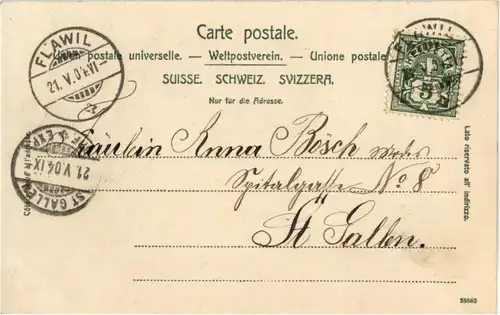 Carte postale.
Union postale universelle. — Weltpostverein. — Unione postale
SUISSE. SCHWEIZ. SVIZZERA.
Nur für die Adresse.
FLAWIL
21.V.04.VI
FLAWIL
ST GALLEN
21.V.04.IX
Fräulein Anna Bösch Modes
Spitalgasse No. 8
St Gallen.
Lato riservato all' indirizzo.
28865